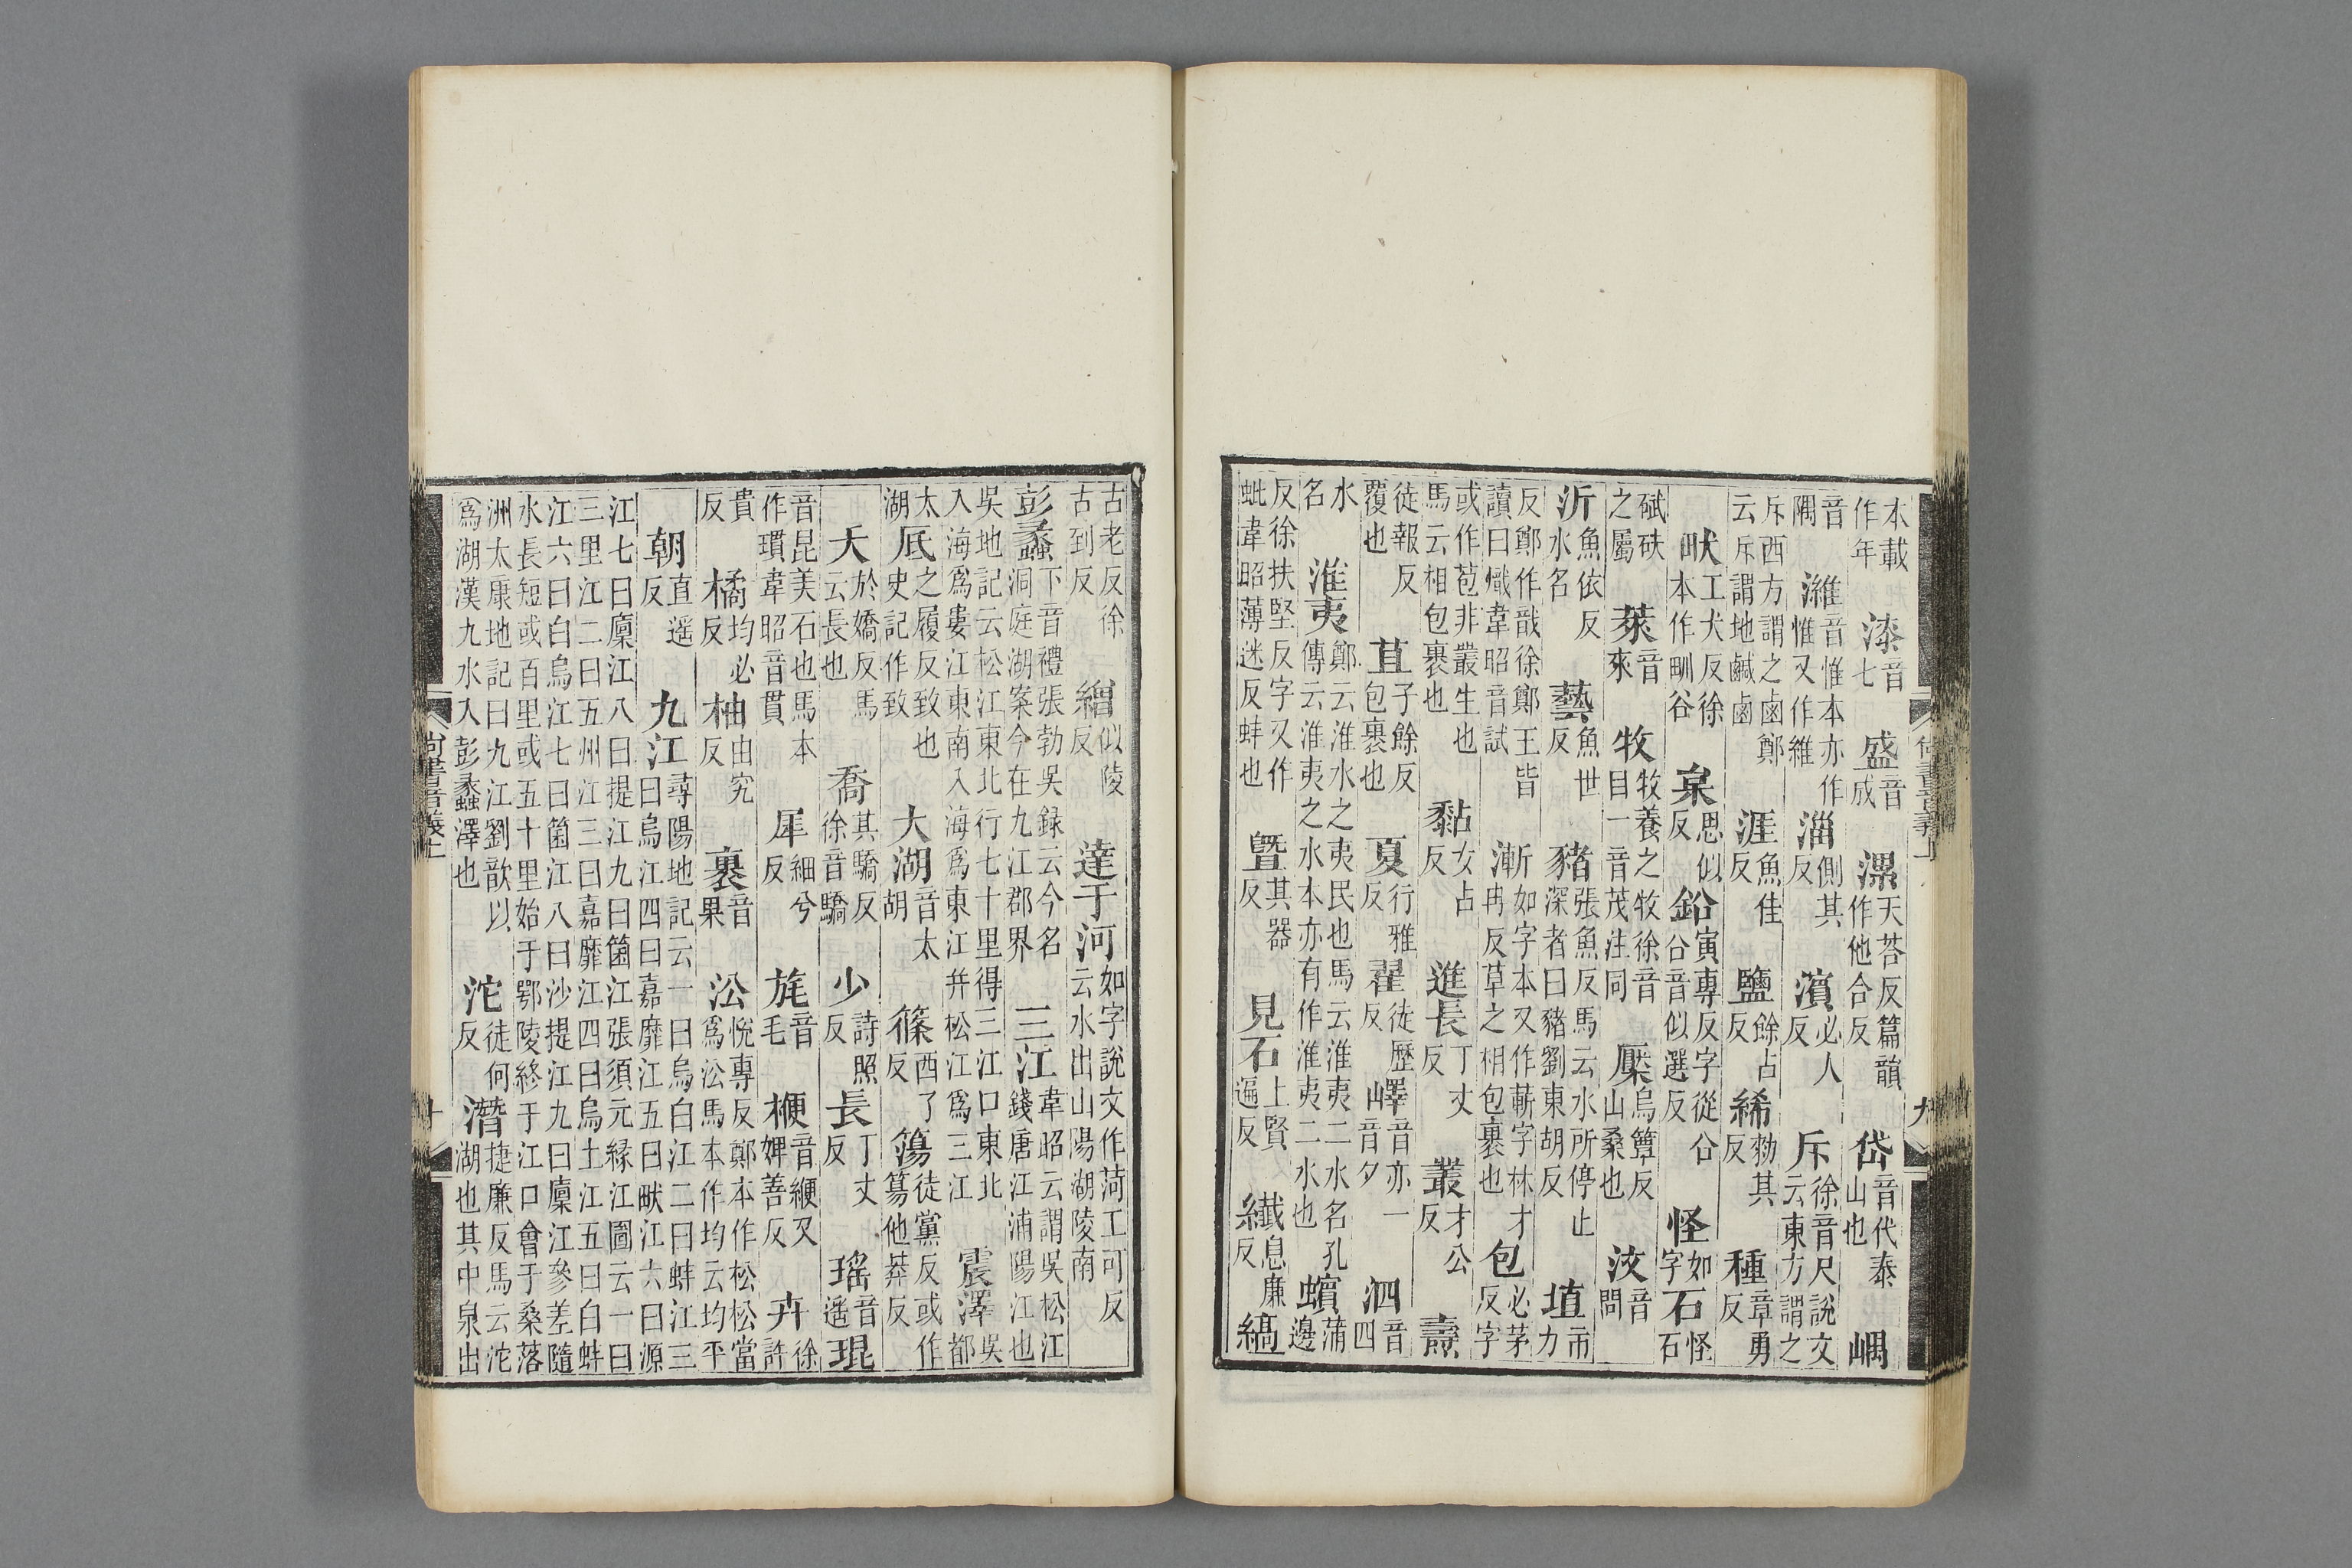 本載作年漆音七盛音成漯天荅反篇韻作他合反岱音代泰山也嵎
音隅濰音惟本亦作惟又作維淄側其反濱必人反斥徐音尺說文云東方謂之
斥西方謂之鹵鄭云斥謂地鹹鹵涯魚佳反鹽餘占反絺勑其反種章勇反
畎工犬反徐本作甽谷枲思似反鉛寅專反字從㕣㕣音似選反怪如字石怪石
碔砆之屬萊音來牧牧養之牧徐音目一音茂注同檿烏簟反山桑也汶音問
沂魚依反水名藝魚世反豬張魚反馬云水所停止深者曰豬劉東胡反埴市力
反鄭作戠徐鄭王皆讀曰熾韋昭音試漸如字本又作蔪字林才冉反草之相包裹也包必茅反字
或作苞非叢生也馬云相包裹也黏女占反進長丁丈反叢才公反燾
徒報反覆也苴子餘反包裹也夏行雅反翟徒歷反嶧音亦一音夕泗音四
水名淮夷鄭云淮水之夷民也馬云淮夷二水名孔傳云淮夷之水本亦有作淮夷二水也蠙蒲邊
反徐扶堅反字又作蚍韋昭薄迷反蚌也曁其器反見石上賢遍反纖息廉反縞
尚書音義上 九
古老反徐古到反繒似陵反達于河如字說文作菏工可反云水出山陽湖陵南
彭蠡下音禮張勃吳録云今名洞庭湖案今在九江郡界三江韋昭云謂吳松江錢唐江浦陽江也
吳地記云松江東北行七十里得三江口東北入海爲婁江東南入海爲東江并松江爲三江震澤吳都
太湖厎之履反致也史記作致大湖音太胡篠西了反簜徒黨反或作簜他莽反
夭於嬌反馬云長也喬其驕反徐音驕少詩照反長丁丈反瑤音遙琨
音昆美石也馬本作瑻韋昭音貫犀細兮反旄音毛楩音緶又婢善反卉徐許
貴反橘均必反柚由究反裹音果㳂悅專反鄭本作松松當爲㳂馬本作均云均平
朝直遥反九江尋陽地記云一曰烏白江二曰蚌江三曰烏江四曰嘉靡江五曰畎江六曰源
江七曰廩江八曰提江九曰箘江張須元緣江圖云一曰三里江二曰五州江三曰嘉靡江四曰烏土江五曰白蚌
江六曰白烏江七曰箘江八曰沙提江九曰廩江參差隨水長短或百里或五十里始于鄂陵終于江口會于桑落
洲太康地記曰九江劉歆以爲湖漢九水入彭蠡澤也沱徒何反潛捷廉反馬云沱湖也其中泉出
尚書音義上 十